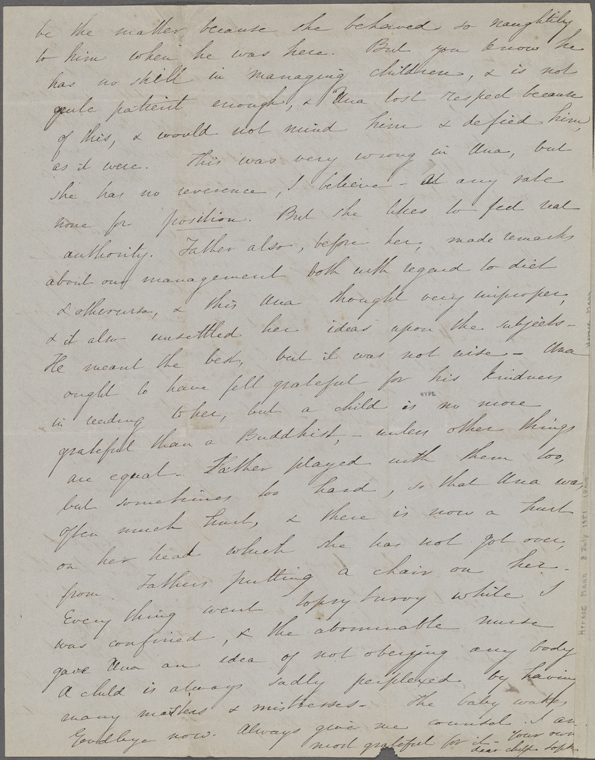 be the matter because she behaved so naughtily
to him when he was here. But you know he
has no skill in managing children, & is not
quite patient enough, & Una lost respect because
of this, & would not mind him & defied him,
as it were. This was very wrong in Una, but
she has no reverence, I believe - At any rate
none for position. But she likes to feel real
authority. Father also, before her, made remarks
about our management both with regard to diet
& otherwise, & this Una thought very improper,
& it also unsettled her ideas upon the subjects -
He meant the best, but it was not wise - Una
ought to have felt grateful for his kindness
in reading to her, but a child is no more
grateful than a Buddhist, - unless other things
are equal - Father played with them too,
but sometimes too hard, so that Una was
often much hurt, & there is now a hurt
on her head which she has not got over,
from Father's putting a chair on her -
Every thing went topsy turvy while I
was confined, & the abominable nurse
gave Una an idea of not obeying any body
A child is always sadly perplexed by having
many masters & mistresses - The baby wakes
Goodbye now. Always give me counsel I am
most grateful for it - Your own
dear child Soph